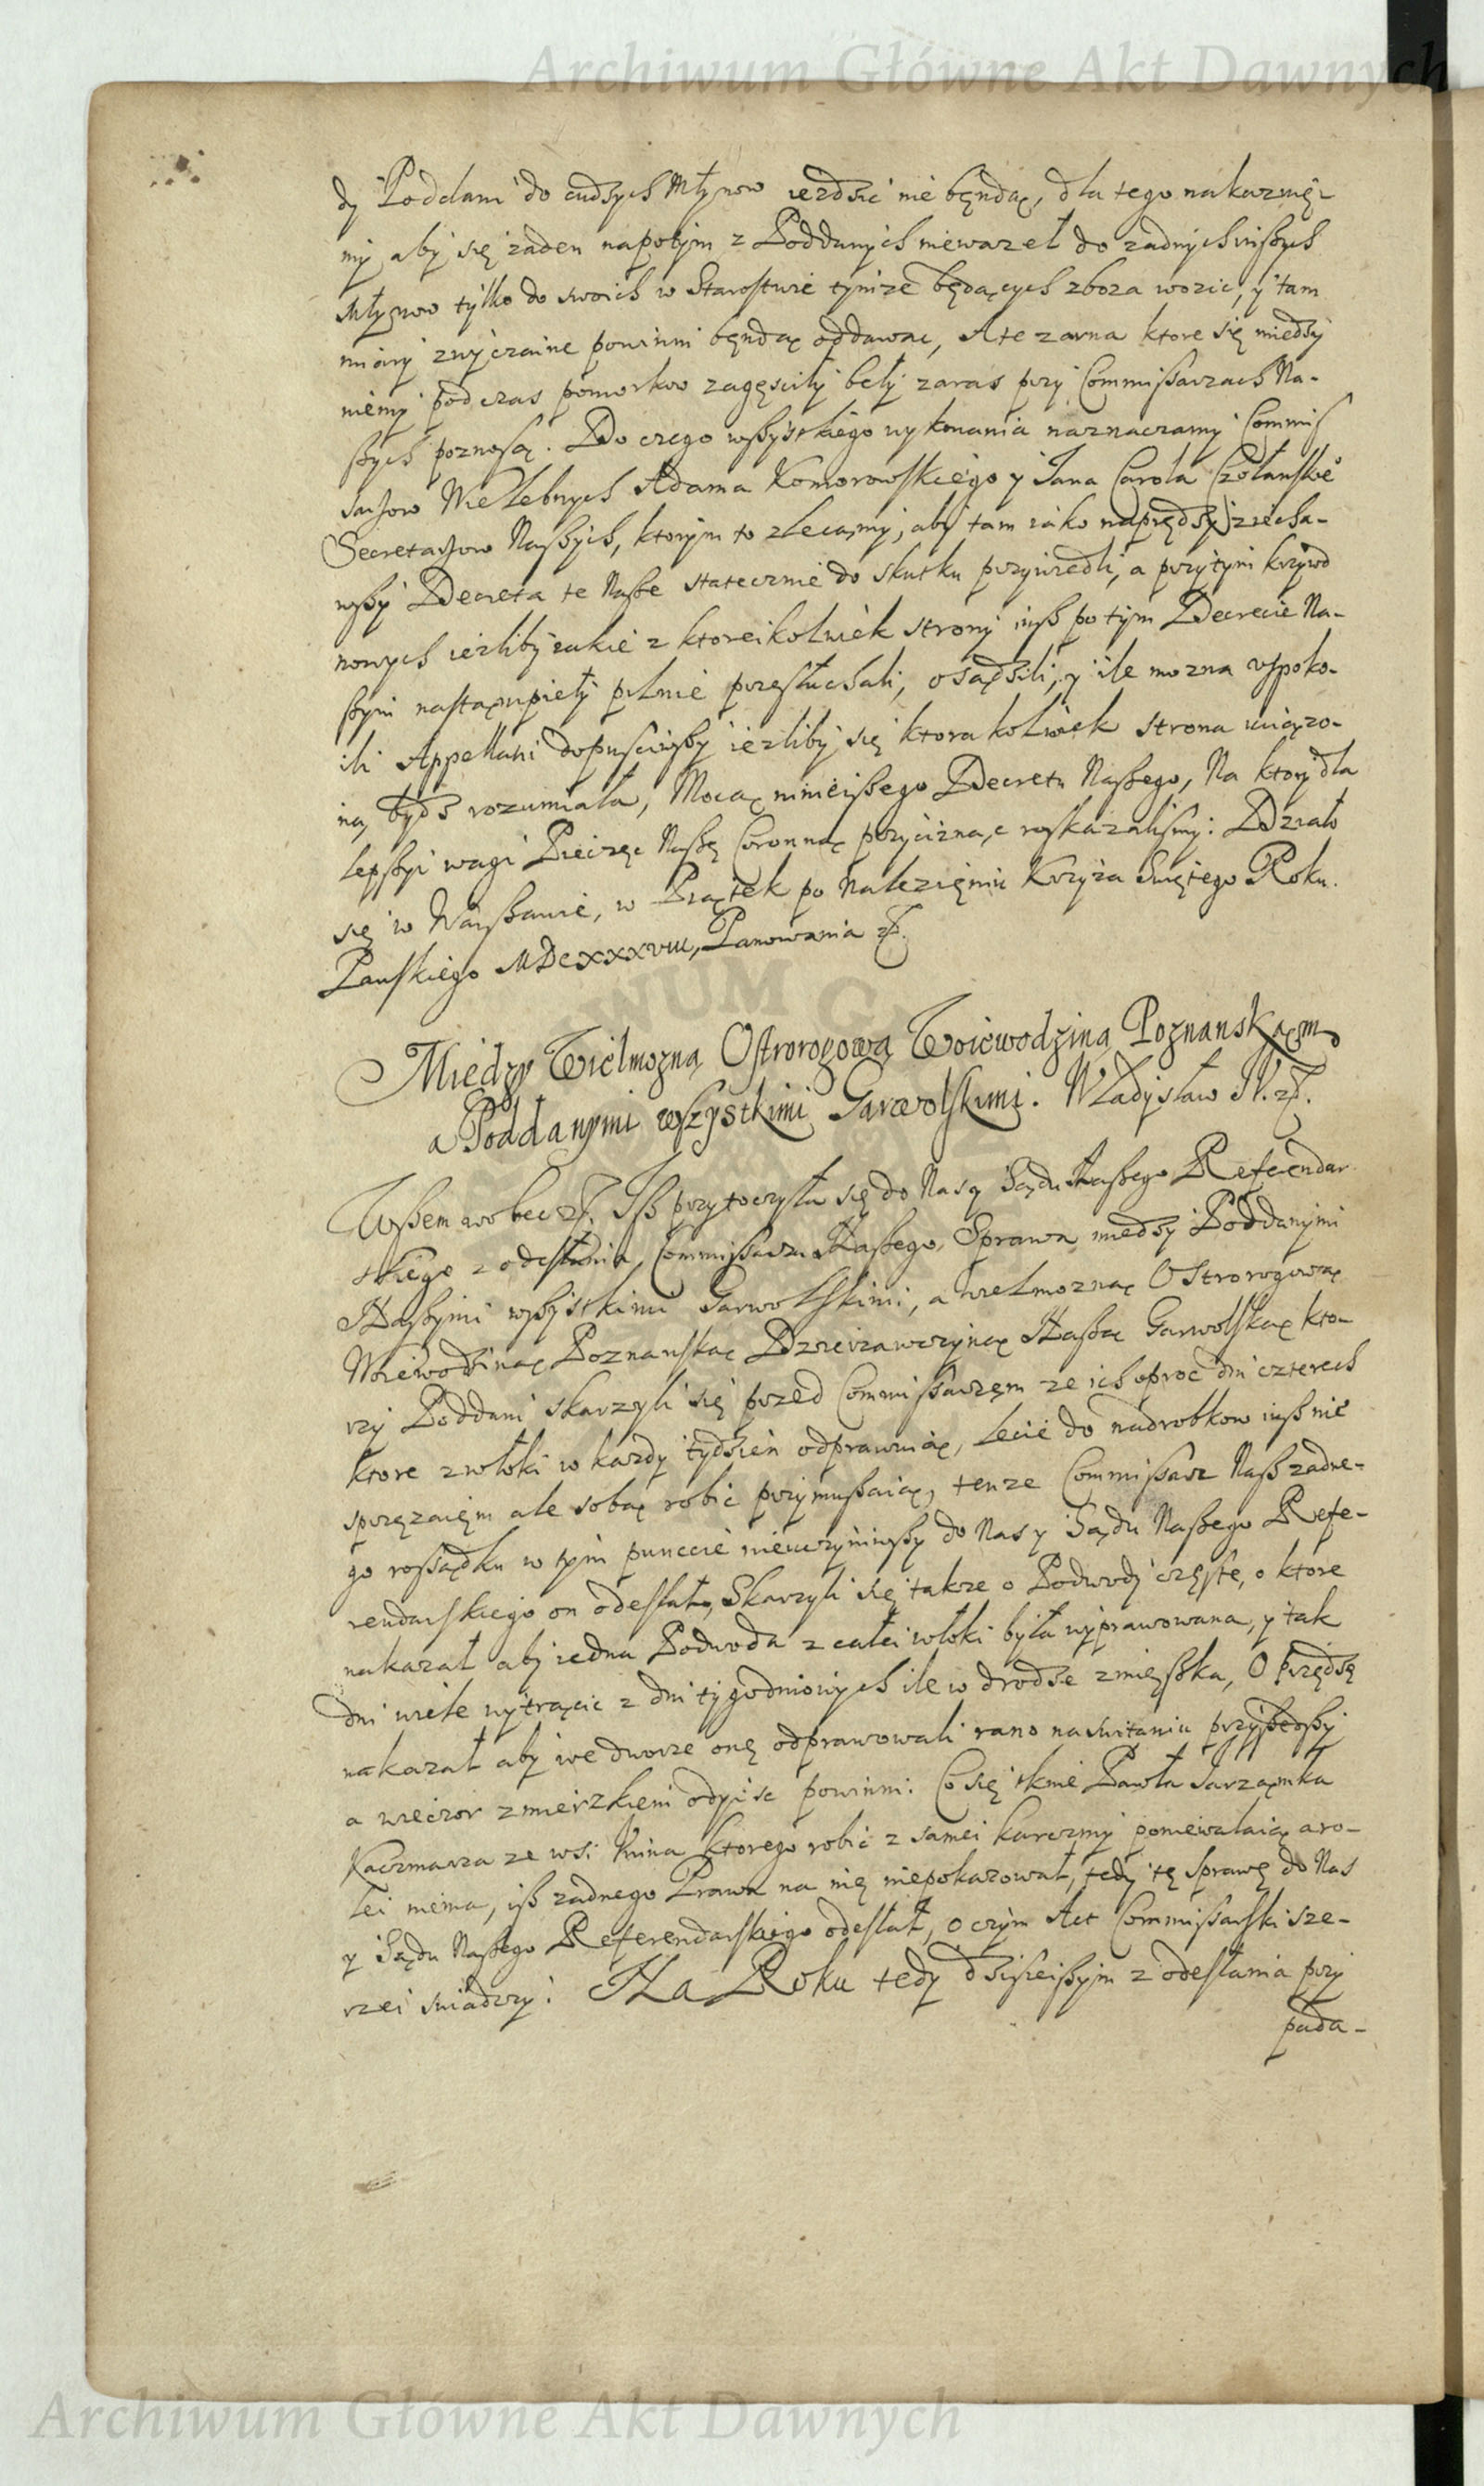 Archiwum Główne Akt Dawnych
dy Poddani do cudzych Młynow iezdzic nie będą, dla tego nakazuię-
my aby się zaden napotym z Poddanych niewazeł do zadnych inszych
Młynow tylko do swoich w Starostwie tymze będących zboza wozic, y tam
miary zwyczaine powinni będą oddawac, A te zarna ktore się miedzy
niemy pod czas pomorkow zagęsciły beły zaras przy Commissarzach Na-
szych poznoszą. Do czego wszystkiego wykonania naznaczamy Commis
sarzow Wielebnych Adama Komorowskiego y Jana Carola Czołanskie
Secretarzow Naszych, ktorym to zlecamy, aby tam iako naprędzy ziecha-
wszy Decreta te Nasze statecznie do skutku przywiedli, a przytym krzywd
nowych iezliby iakie z ktoreikolwiek strony iusz po tym Decrecie Na-
szym nastąmpieły pilnie przesłuchali, osądzili, y ile mozna uspoko-
ili Appellatii dopusciwszy iezliby się ktora kolwiek strona uciązo-
ną bydz rozumiała, Mocą ninieiszego Decretu Naszego, Na ktory dla
lepszyi wagi Pieczęc Naszę Coronną przycisnąc roskazalismy: Działo
się w Warszawie, w Piątek po Nalezięniu Krzyza Swiętego Roku.
Panskiego MDCXXXVIII, Panowania etc.
Miedzy Wielmozną Ostrorogową Woiewodziną Poznanskąm
a Poddanymi wszystkimi Garwolskimi. Władysław IV. etc.
Wszem wobec etc. Isz przytoczyła się do Nas y Sądu Naszego Referendar
skiego z odesłania Commissarza Naszego, Sprawa miedzy Poddanymi
Naszymi wszystkimi Garwolskimi, a wielmozną Ostrorogową
Woiewodziną Poznanską Dzierzawczyną Naszą Garwolską kto-
rzy Poddani skarzyli się przed Commissarzęm ze ich oproc dni czterech
ktore z włoki w kazdy tydzien odprawuią, Lecie do nadrobkow iusz nie
sprzęzaięm ale sobą robic przymuszaią, tenze Commissarz Nasz zadne-
go rossądku w tym punccie nieuczyniwszy do Nas y Sądu Naszego Refe-
rendarskiego on odesłał, Skarzyli się takze o Podwody częste, o ktore
nakazał aby iedna Podwoda z całei włoki była wyprawowana, y tak
dni wiele wytrącic z dni tygodniowych ile w drodze zmięszka, O przędzę
nakazał aby we dworze onę odprawowali rano na switaniu przyszedszy
a wieczor zmierzkiem odyisc powinni: Co się tknie Pawła Jarząmka
Kaczmarza ze wsi Unina ktorego robic z samei karczmy poniewalaią a ro-
lei niema, isz zadnego Prawa na nię niepokazował, tedy tę Sprawę do Nas
y Sądu Naszego Referendarskiego odesłał, o czym Act Commissarski sze-
rzei swiadczy: Na Roku tedy dzisieiszym z odesłania przy
pada-
Archiwum Główne Akt Dawnych